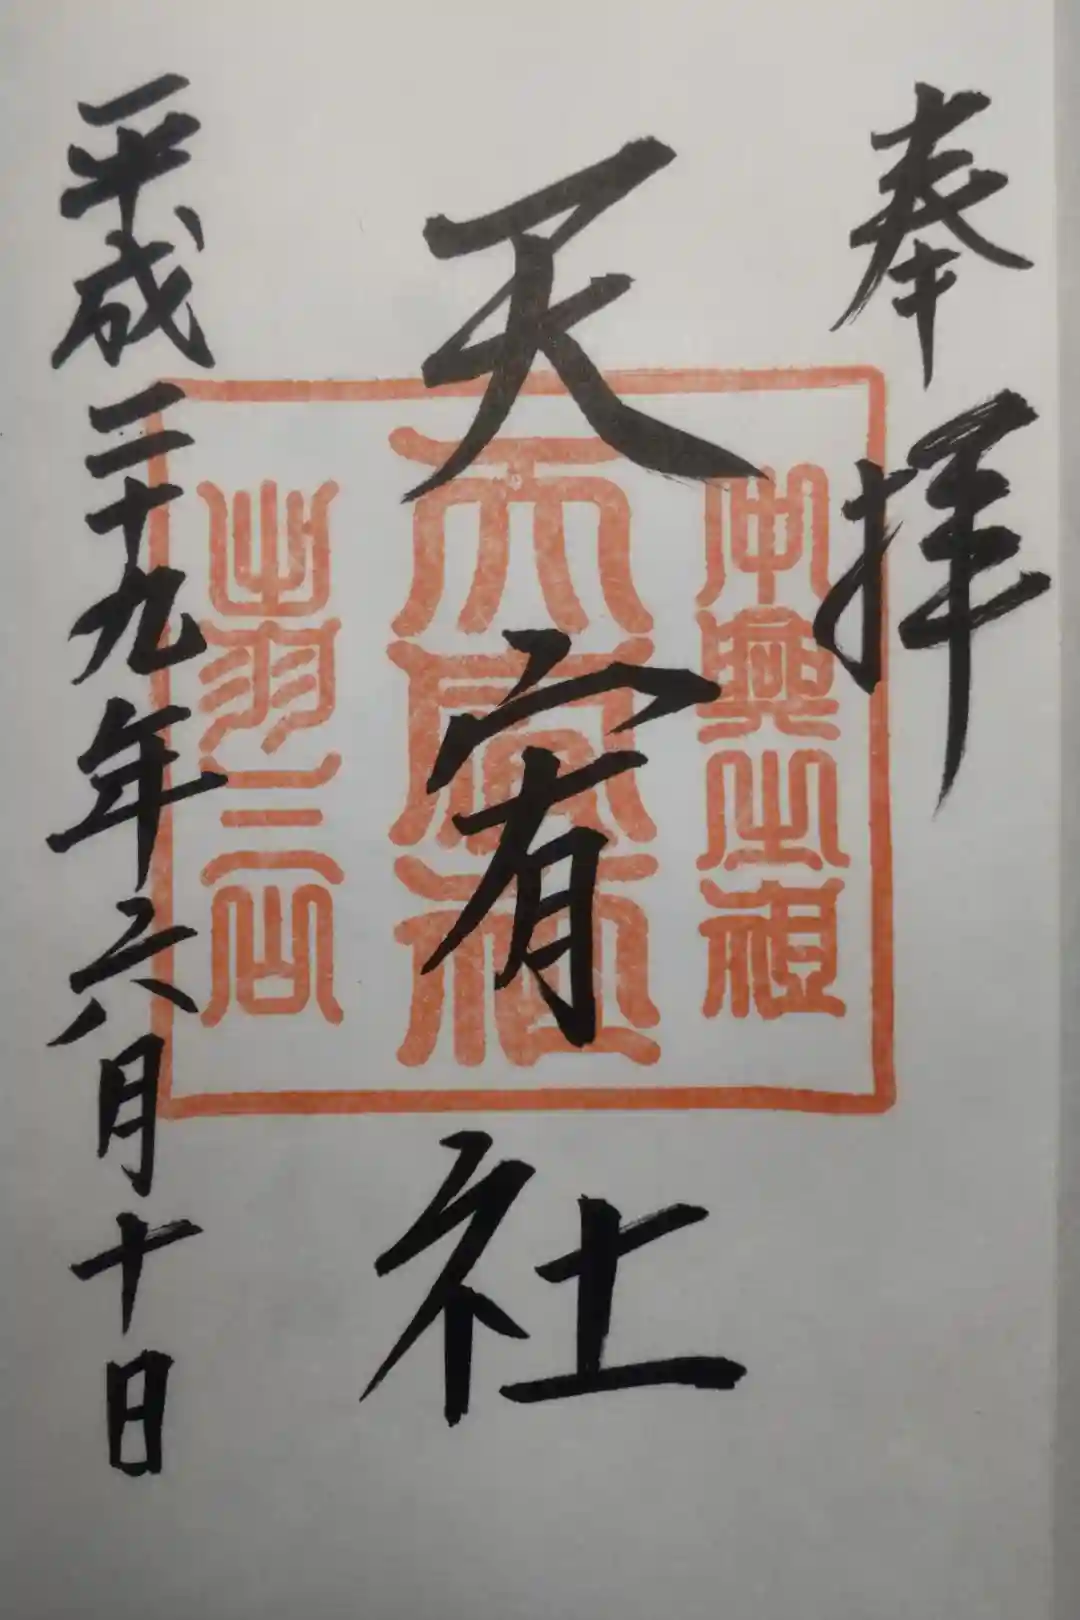 奉拝
天宥社
平成二十九年六月十日
中興之祖
天宥社
出羽三山